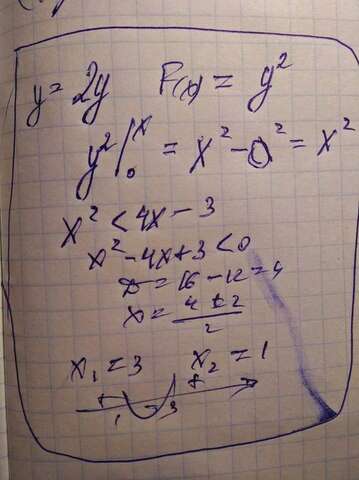 y = 2y F(x) = y²
y² |₀ˣ = x² - 0² = x²
x² < 4x - 3
x² - 4x + 3 < 0
D = 16 - 12 = 4
x = (4 ± 2)/2
x₁ = 3 x₂ = 1
+ - +
1 3